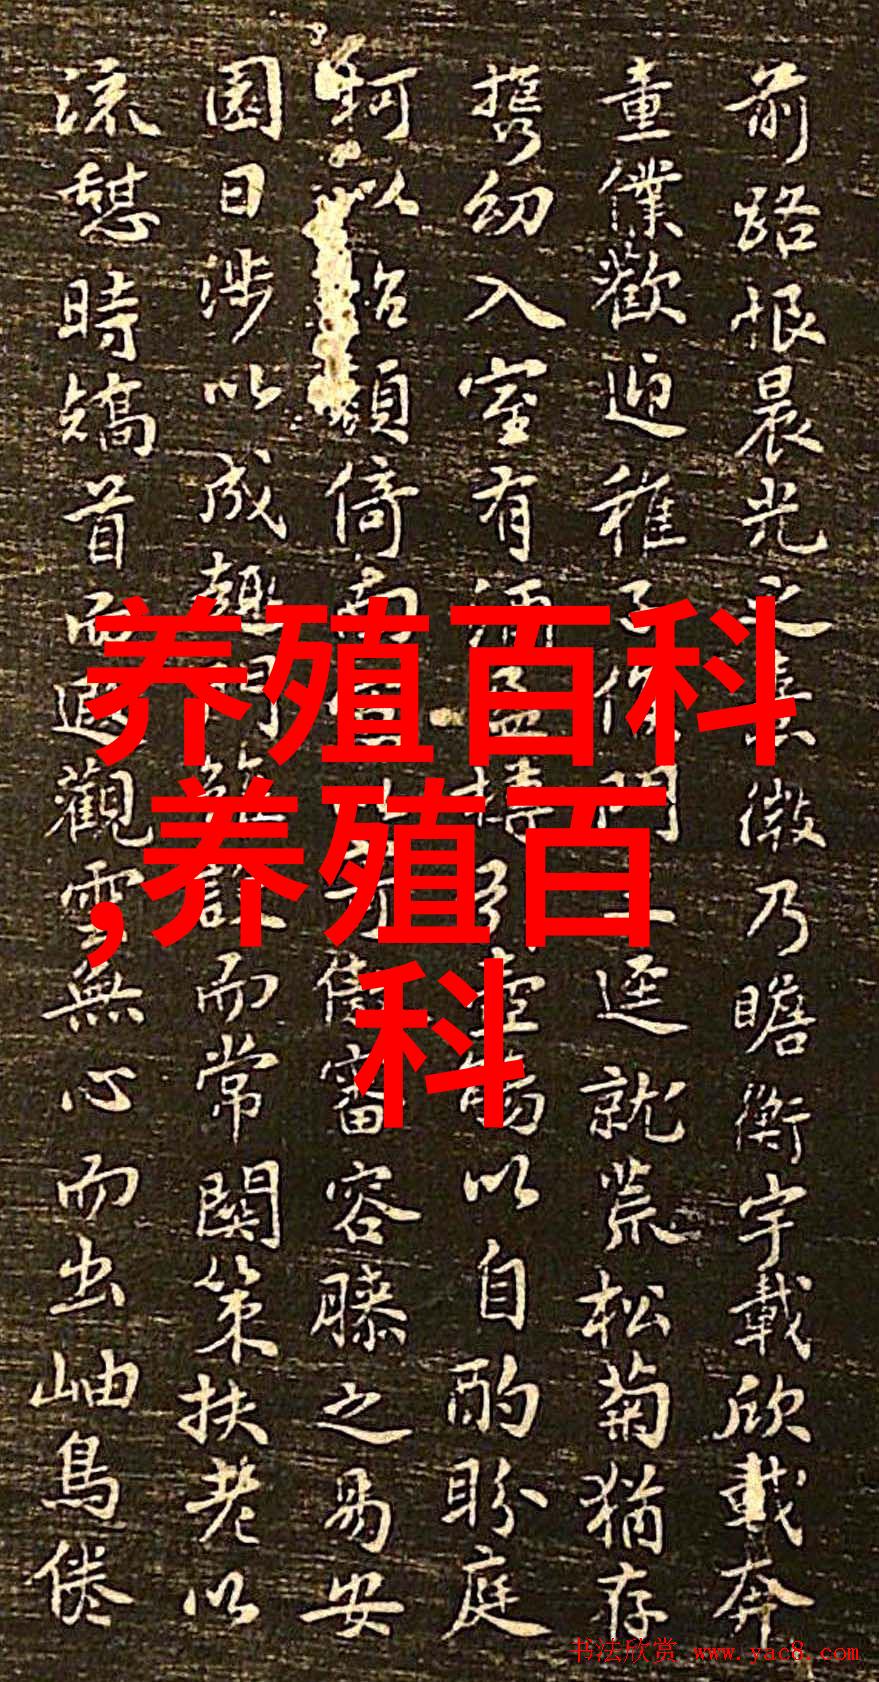 前路恨晨光之熹微乃瞻衡宇載欣載奔
童僕歡迎稚子候門三逕就荒松菊猶存
携幼入室有酒盈樽引壺觴以自酌盼庭
柯以怡顔倚南以寄傲審容膝之易安
園日涉以成趣門雖設而常關策扶老以
流憩時矯首而遐觀雲無心而出岫鳥倦
养殖百科
,养殖百
科
书法欣赏 www.yac8.com